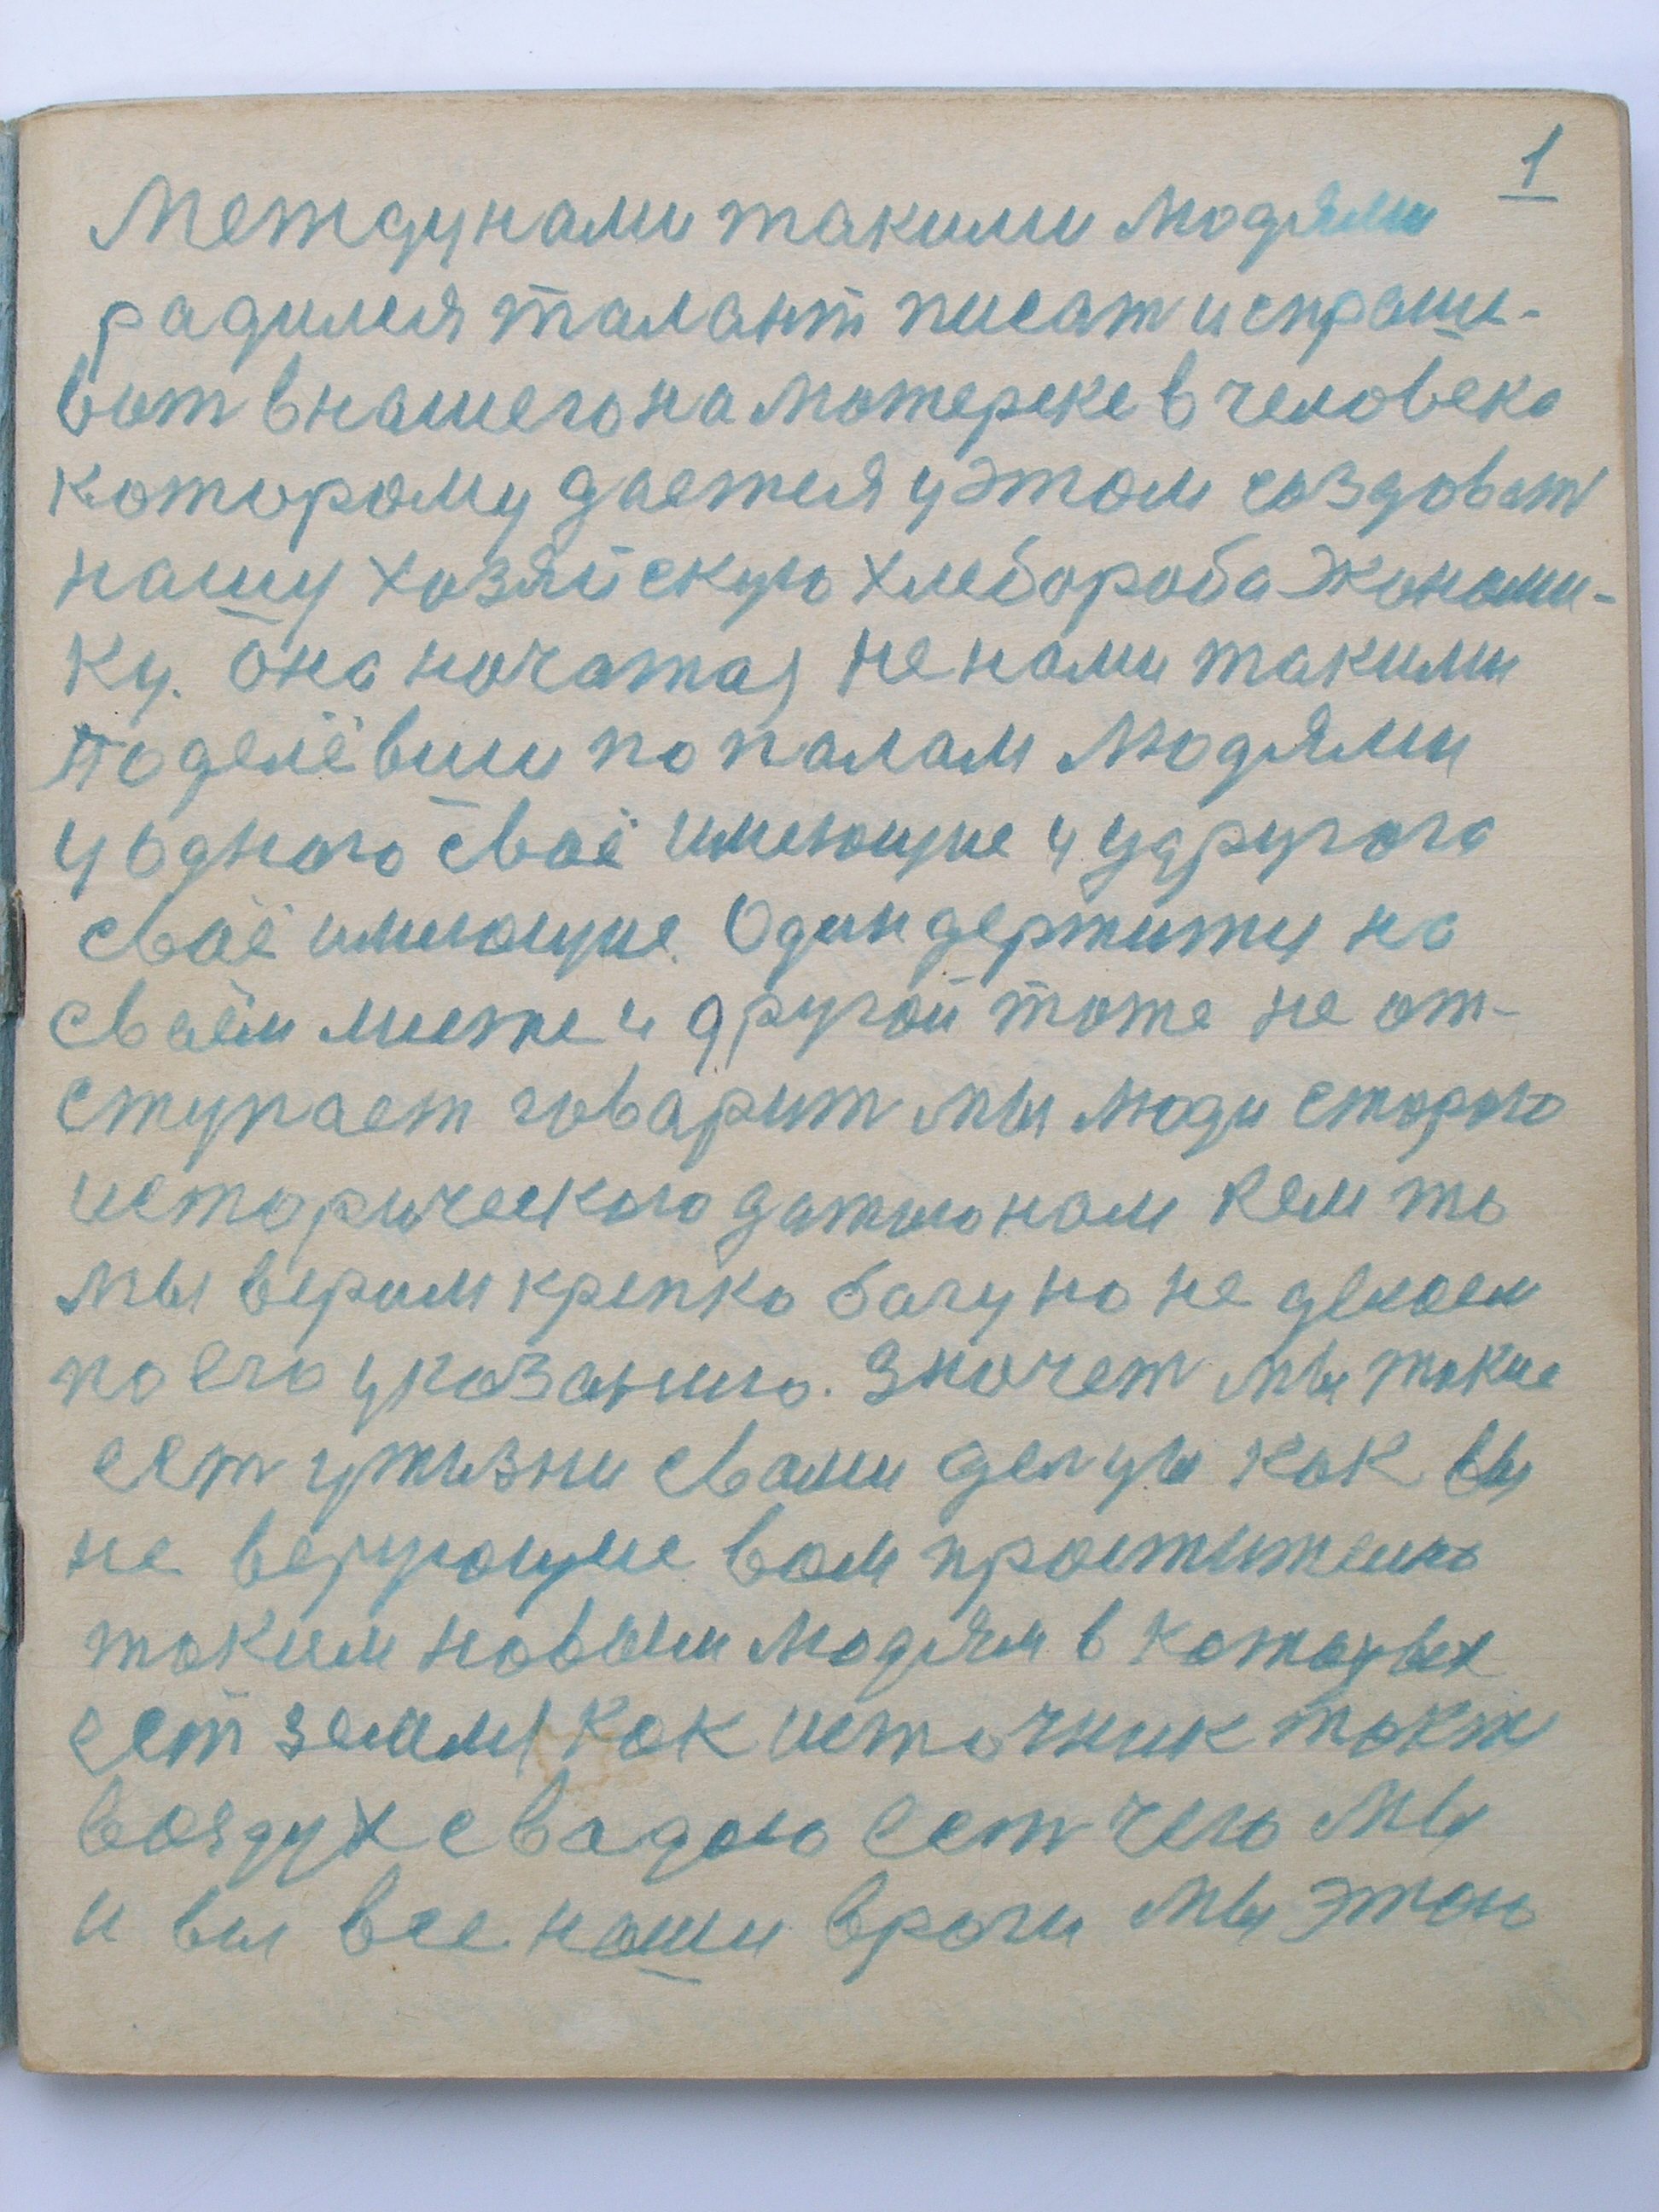 1
Междунами такими людями
радился талант писат и спраши-
ват внашегона матереке в человека
которому дается уэтом саздоват
нашу хозяйскую хлебороба Экономи-
ку. Она начатая не нами такими
поделёвши попалам людями
у одного сваё имеющие и удругога
сваё имеющие. Один держити на
сваём месте и другой тоже не от-
ступает говарит мы люди старого
исторического датыонам кем то
мы верим крепко багу но не делаем
по его указанию. Значет мы такие
ест ужызни сваши делцы как вы
не верующие вам простително
таким новым людям в которых
ест земля как источник такжи
воздух свадою ест чего мы
и вы все наши враги мы этаю